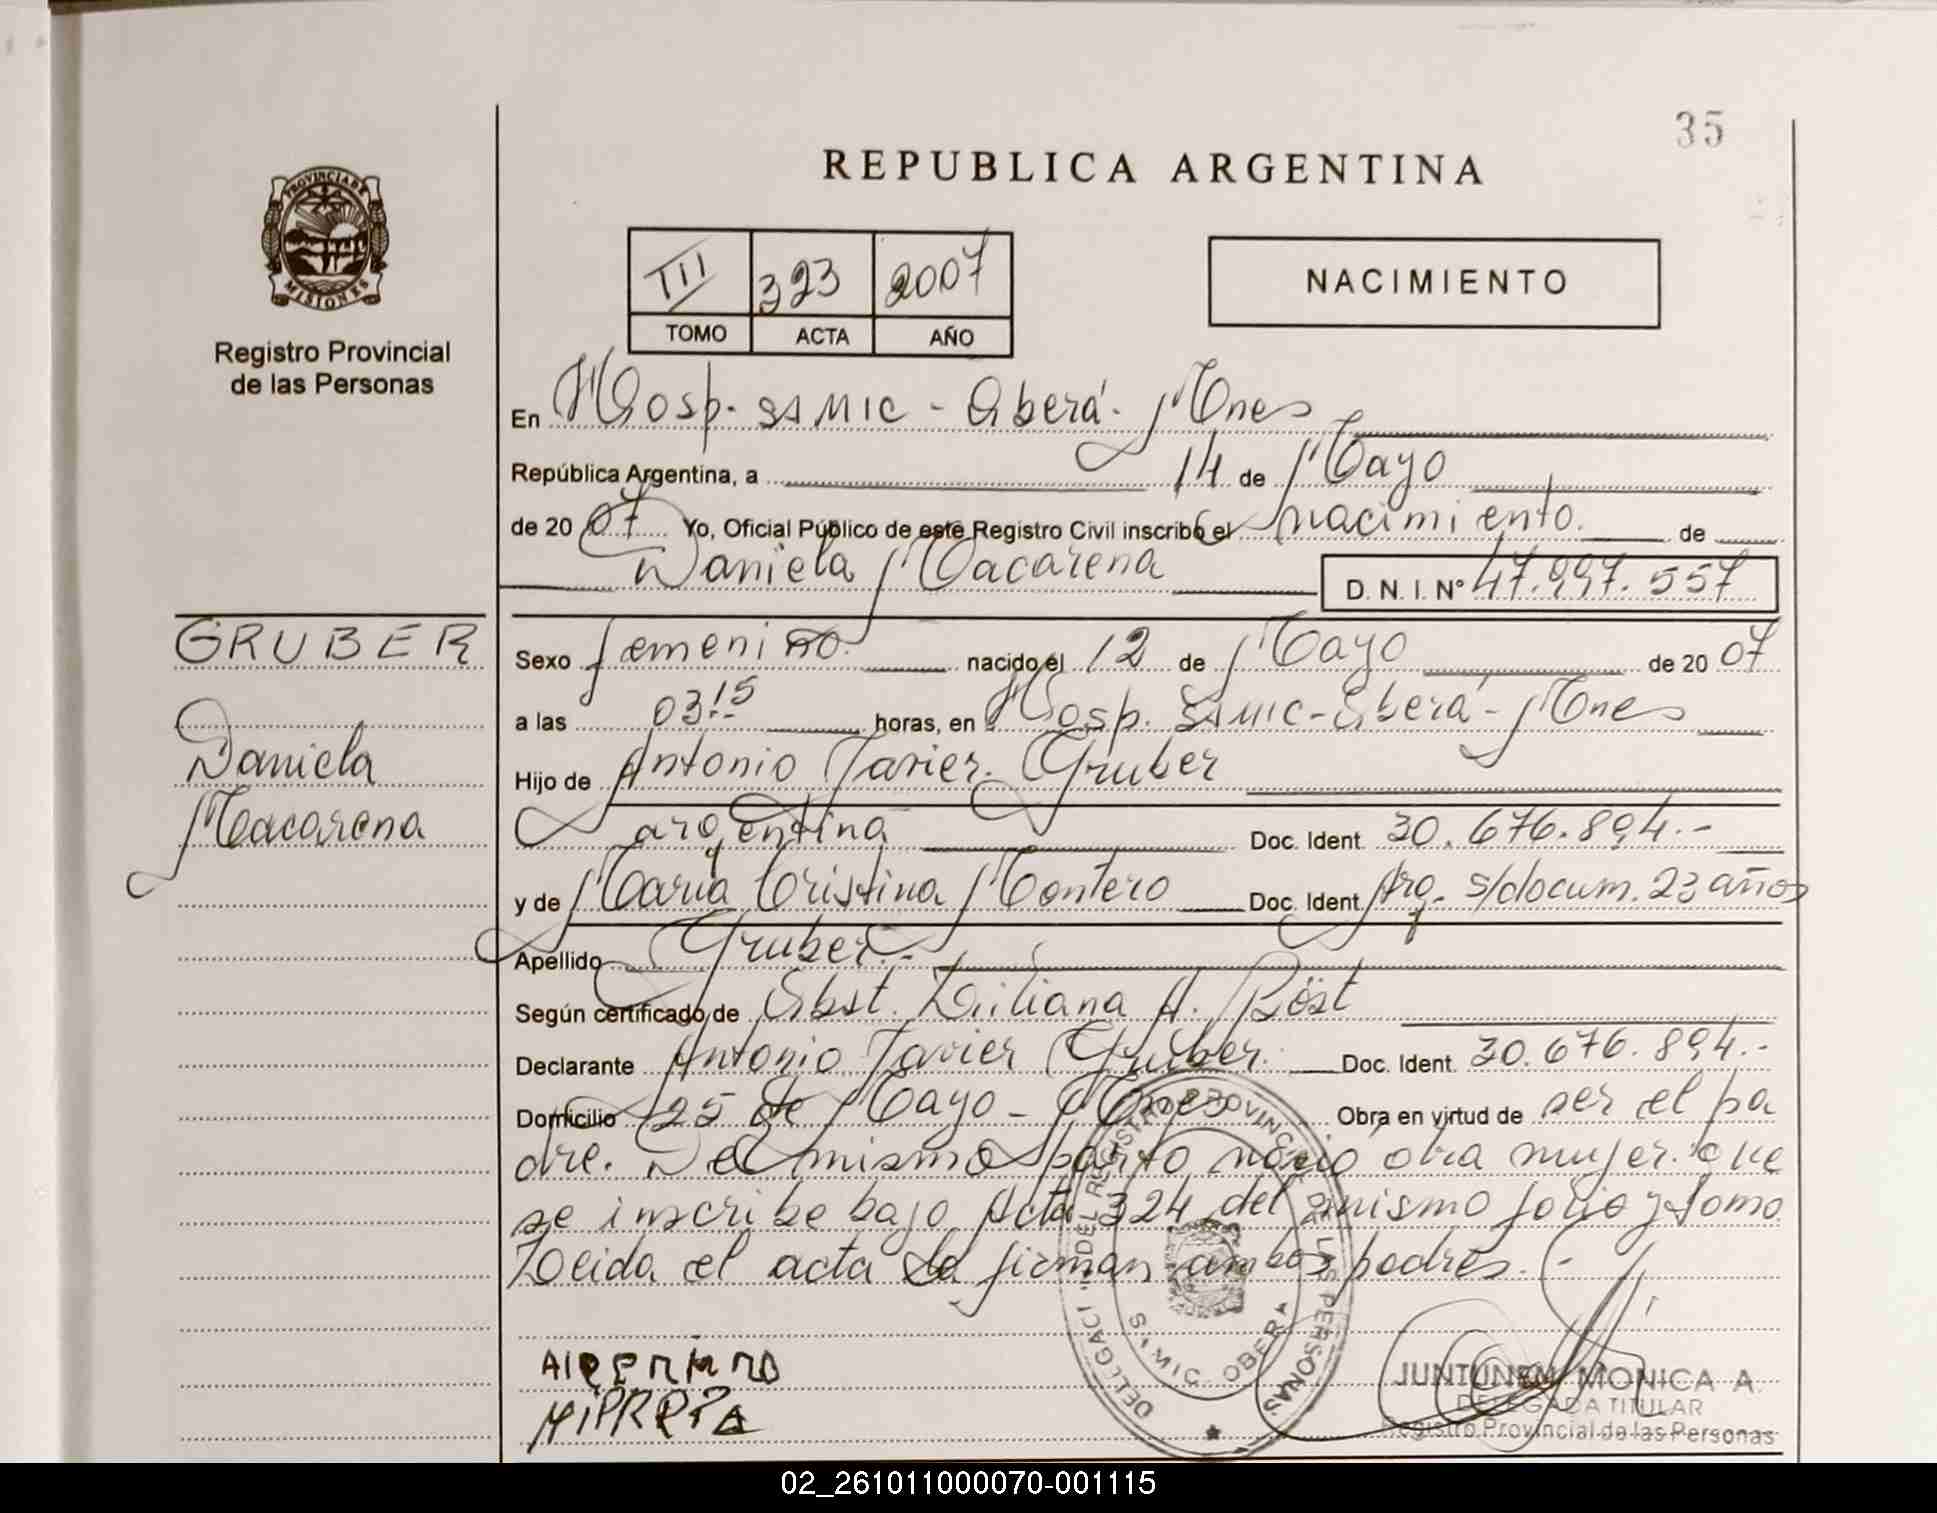 35
REPUBLICA ARGENTINA
PROVINCIA DE
MISIONES
Registro Provincial
de las Personas
III 323 2007
TOMO ACTA AÑO
NACIMIENTO
En Hosp. SAMIC - Oberá - Mnes
República Argentina, a 14 de Mayo
de 2007 Yo, Oficial Público de este Registro Civil inscribo el nacimiento. de
Daniela Macarena D. N. I. Nº 47.997.557
GRUBER
Daniela
Macarena
Sexo femenino. nacido el 12 de Mayo de 2007
a las 03:15 horas, en Hosp. SAMIC - Oberá - Mnes
Hijo de Antonio Javier Gruber
argentina Doc. Ident. 30.676.894.-
y de Maria Cristina Montero Doc. Ident. Arg. s/docum. 23 años
Apellido Gruber.-
Según certificado de Obst. Liliana A. Röst
Declarante Antonio Javier Gruber. Doc. Ident. 30.676.894.-
Domicilio 25 de Mayo - Mnes Obra en virtud de ser el pa
dre. Del mismo parto nació otra mujer que
se inscribe bajo Acta 324 del mismo folio y tomo
Leida el acta la firman ambos padres.-
DEL REGISTRO PROVINCIAL DE LAS PERSONAS
OBERA
JUNTUNEM MONICA A
DELEGADA TITULAR
Registro Provincial de las Personas
02_261011000070-001115